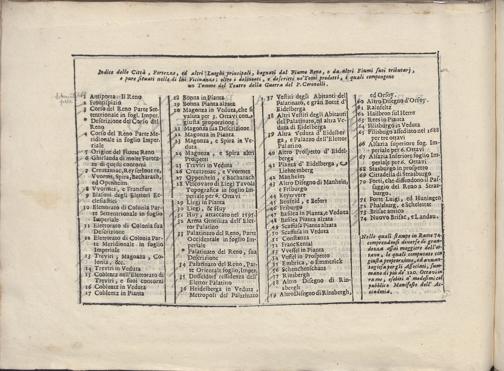 Indice delle Città, Fortezze, ed Altri Luoghi principali, bagnati dal Fiume Reno, o da Altri Fiumi suoi tributarj,
e pure situati nelle di lui Vicinanze; oltre i delineati, e descritti ne' Tomi prodotti, i quali compongono
un Tomone del Teatro della Guerra del P. Coronelli.
1 Antiporta. Il Reno
2 Frontispizio
3 Corso del Reno Parte Set-
tentrionale in fogl. Imper.
4 Descrizione del Corso del
Reno
5 Corso del Reno Parte Me-
ridionale in foglio Imper-
iale
6 Origini del Fiume Reno
7 Ghirlanda di molte Fortez-
ze di quei contorni
8 Creutznac, Reysefbourg,
Worms, Spira, Bacharach,
ed Openheim.
9 Worms, e Francfort
10 Blasoni degli Elettori Ec-
clesiastici
11 Elettorato di Colonia Par-
te Settentrionale in foglio
Imperiale
12 Elettorato di Colonia sua
Descrizione
12 Elettorato di Colonia Par-
te Meridionale in foglio
Imperiale
13 Treviri, Magonza, Co-
lonia, &c.
14 Treviri in Veduta
15 Coblenz nell'Elettorato di
Treviri, e suoi contorni
16 Coblentz in Veduta
17 Coblentz in Pianta
18 Bonna in Pianta
19 Bonna Pianta alzata
20 Magonza in Veduta, che si
valuta per 3. Ottavi con
giusta proporzione
21 Magonza sua Descrizione
22 Magonza in Pianta
23 Magonza, e Spira in Ve-
duta
24 Magonza, e Spira altri
Prospetti
25 Treviri in Veduta
26 Creutznac, e Worms
27 Oppenheim, e Bacharach
28 Vescovato di Liegi Tavola
Topografica in foglio Im-
periale per 6. Ottavi
29 Liegi in Pianta
30 Liegi, & Huy
31 Huy, attaccato nel 1693
32 Arma Gentilizia dell'Elet-
tor Palatino
33 Palatinato del Reno, Parte
Occidentale in foglio Im-
periale
34 Palatinato del Reno, sua
Descrizione
35 Palatinato del Reno, Par-
te Orientale foglio Imper.
36 Dusseldorf residenza dell'
Elettor Palatino
36 Heidelberga in Veduta,
Metropoli del Palatinato
37 Vestiti degli Abitanti del
Palatinato, e gran Botte d'
Eidelberga
38 Altri Vestiti degli Abitanti
del Palatinato, ed altra Ve-
duta di Eidelberga
39 Altra Veduta d'Eidelber-
ga, e Palazzo dell'Elettor
Palatino
40 Altro Prospetto d'Eidel-
berga
41 Pianta d'Eidelberga, e
Lichtemberg
42 Manheim
43 Altro Disegno di Manheim,
e Friburg
44 Keyservert
45
46 Friburg
47 Basilea in Pianta, e Veduta
48 Basilea Pianta alzata
49 Scaffusa Pianta alzata
50 Scaffusa in Veduta
51 Costanza
52 Franckental
53 Wessel in Pianta
54 Wessel in Prospetto
55 Embrica, e Emmerick
56 Schenchenschans
57 Rinsbergh
58 Altro Disegno di Rin-
sbergh
59 Altro Disegno di Rinsbergh,
ed Orsoy.
60 Altro Disegno d'Orsoy.
61 Rainfeld
62 Hailbron sul Herre
63 Rees in Pianta
64 Filisburgo in Veduta
65 Filisburgo assediato nel 1688
per tre ottavi
66 Alsazia superiore fog. Im-
periale per 6. Ottavi
67 Alsazia inferiore foglio Im-
periale per 6. Ottavi
68 Strasburgo in Pianta
69 Cittadella di Strasburgo
70 Forti, che difendono il Pas-
saggio del Reno a Stras-
burgo.
71 Forte Luigi, ed Huningen
72 Phalsburg, e Scheenee
73 Brisac antico
74 Nuovo Brisac, e Landau.
Nelle quali stampe in Rame 74.
comprendonsi diverse di gran-
dezza assai maggiore dell'ot-
tavo, le quali computate con
giusta proporzione, ed avvan-
taggiosa per gli Associati, som-
mano di più di 120. Ottavi in
rame, esibiti a' medesimi col
pubblico Manifesto dell'Ac-
cademia.